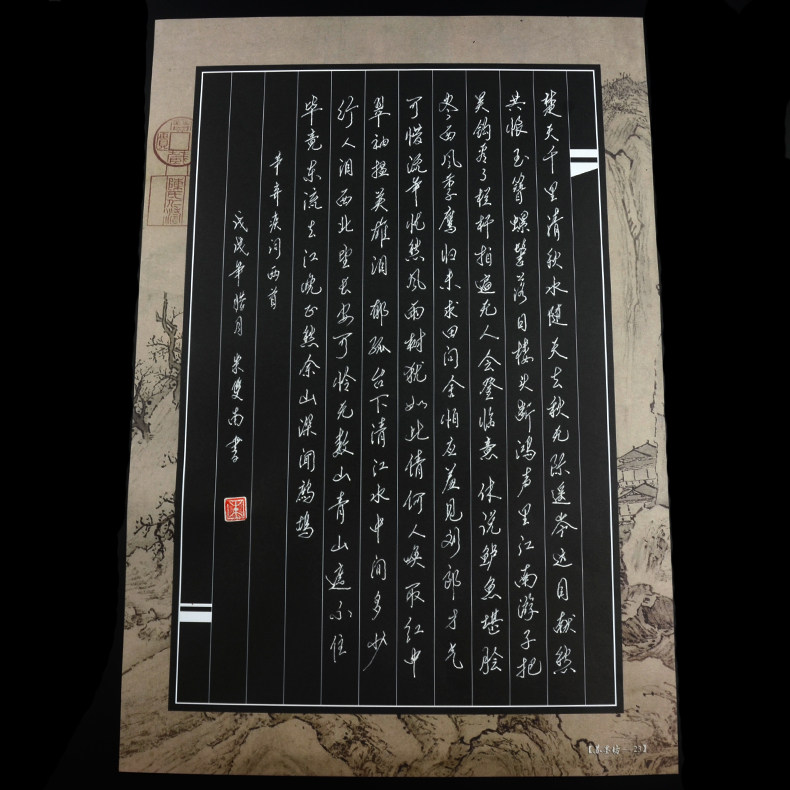 楚天千里清秋水随天去秋无际遥岑远目献愁
供恨玉簪螺髻落日楼头断鸿声里江南游子把
吴钩看了栏杆拍遍无人会登临意 休说鲈鱼堪脍
尽西风季鹰归未求田问舍怕应羞见刘郎才气
可惜流年忧愁风雨树犹如此倩何人唤取红巾
翠袖揾英雄泪 郁孤台下清江水中间多少
行人泪西北望长安可怜无数山青山遮不住
毕竟东流去江晚正愁余山深闻鹧鸪
辛弃疾词两首
戊戌年腊月 朱双南书